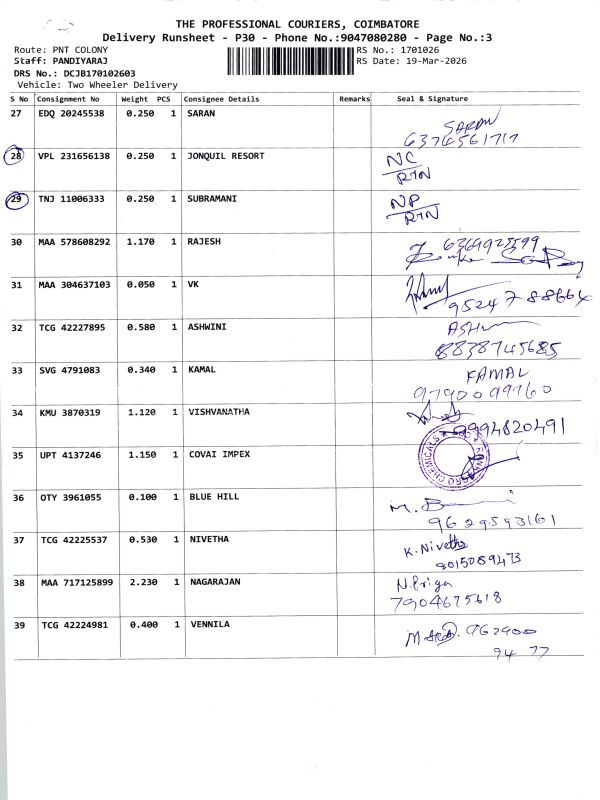 THE PROFESSIONAL COURIERS, COIMBATORE
Delivery Runsheet - P30 - Phone No.:9047080280 - Page No.:3
Route: PNT COLONY RS No.: 1701026
Staff: PANDIYARAJ RS Date: 19-Mar-2026
DRS No.: DCJB170102603
Vehicle: Two Wheeler Delivery
S No Consignment No Weight PCS Consignee Details Remarks Seal & Signature
27 EDQ 20245538 0.250 1 SARAN SARAN
6376561717
28 VPL 231656138 0.250 1 JONQUIL RESORT NC
RTN
29 TNJ 11006333 0.250 1 SUBRAMANI NP
RTN
30 MAA 578608292 1.170 1 RAJESH 6369925599
31 MAA 304637103 0.050 1 VK
9524788664
32 TCG 42227895 0.580 1 ASHWINI
8838745685
33 SVG 4791083 0.340 1 KAMAL KAMAL
9790099760
34 KMU 3870319 1.120 1 VISHVANATHA
9994820491
35 UPT 4137246 1.150 1 COVAI IMPEX CHEMICALS
36 OTY 3961055 0.100 1 BLUE HILL
9629593161
37 TCG 42225537 0.530 1 NIVETHA K. Nivetha
8015089473
38 MAA 717125899 2.230 1 NAGARAJAN N. Priya
7904675618
39 TCG 42224981 0.400 1 VENNILA 962900
94 77